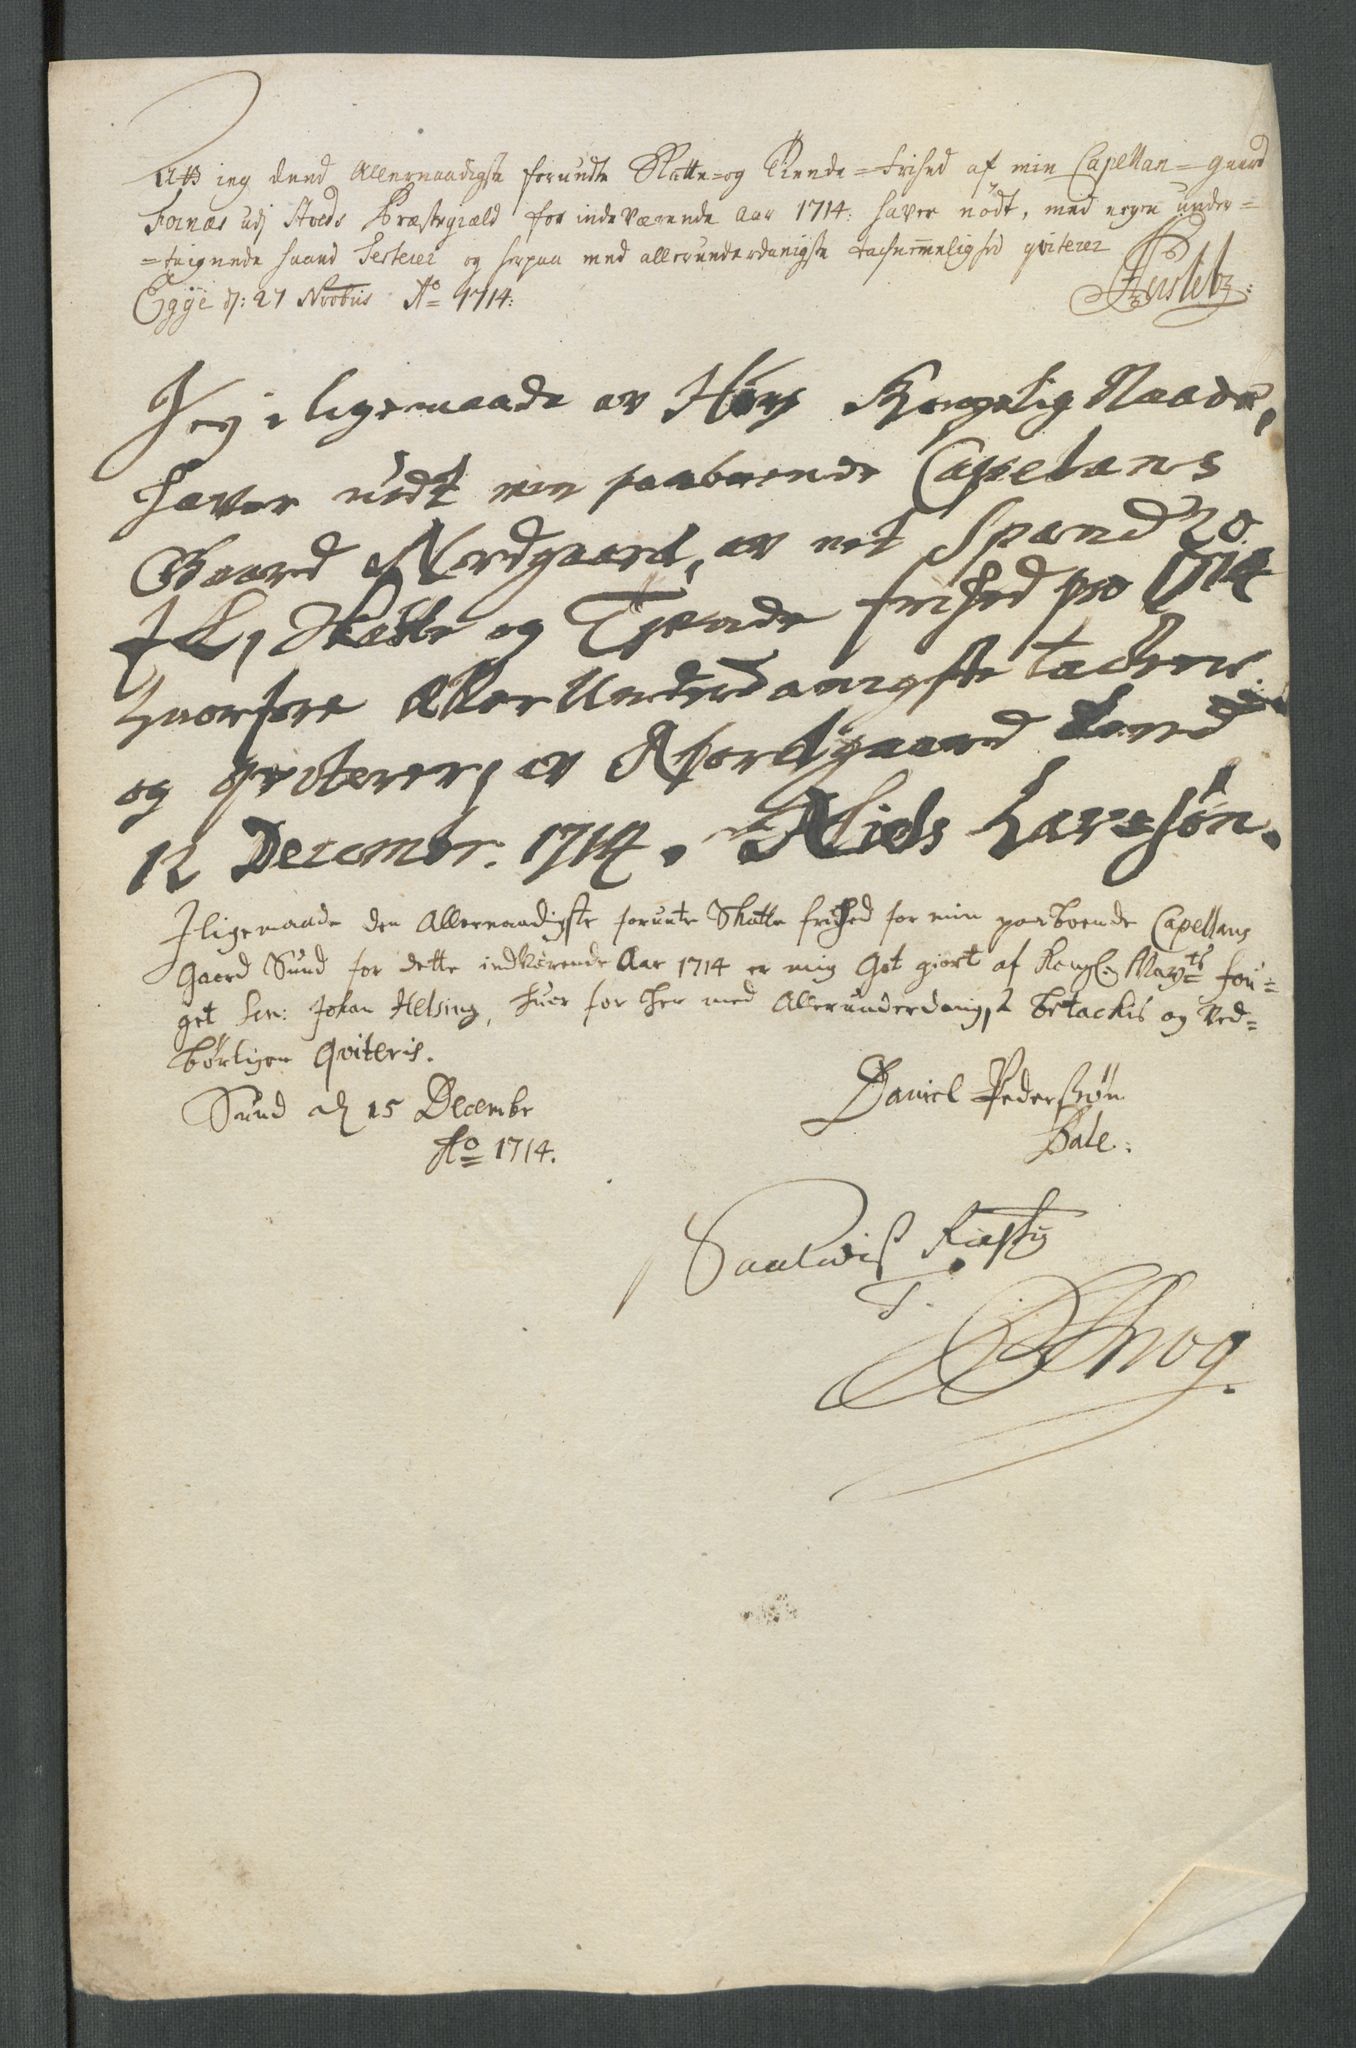 Att ieg dend Allernaadigste forundte Skatte- og Tiende-frihed af min Capellan-gaard
Fornæs udj Stoeds Præstegiæld for indeværende Aar 1714: haver nödt, med egen under-
-teignede haand Testerer og herpaa med allerunderdanigste tachnemmelighed qviterer
Egge d: 27 Novbris Ao 1714:
Jeg i ligemaade av Hans Kongelig Naade,
haver nödt min paaboende Capelans
Gaard Nordgaard, av et Spand 20
Skatte og Tjende frihed pro 1714
hvorfore Aller Underdanigste tacker
og qviterer, av Nordgaard
12 Decembr. 1714. Niels Larssøn.
Iligemaade den Allernaadigste forunte Skatte frihed for min paaboende Capellans
Gaard Sund for dette indværende Aar 1714 er mig Got giort af Kongl. Mayts fou-
get Sr: Johan Helsing, huor for her med Allerunderdanigst betackis og Ved-
börligen Qviteris.
Sund d 15 Decembr
Ao 1714.
Daniel Pederssøn
Bale.
Saaledis Rigtig
T.